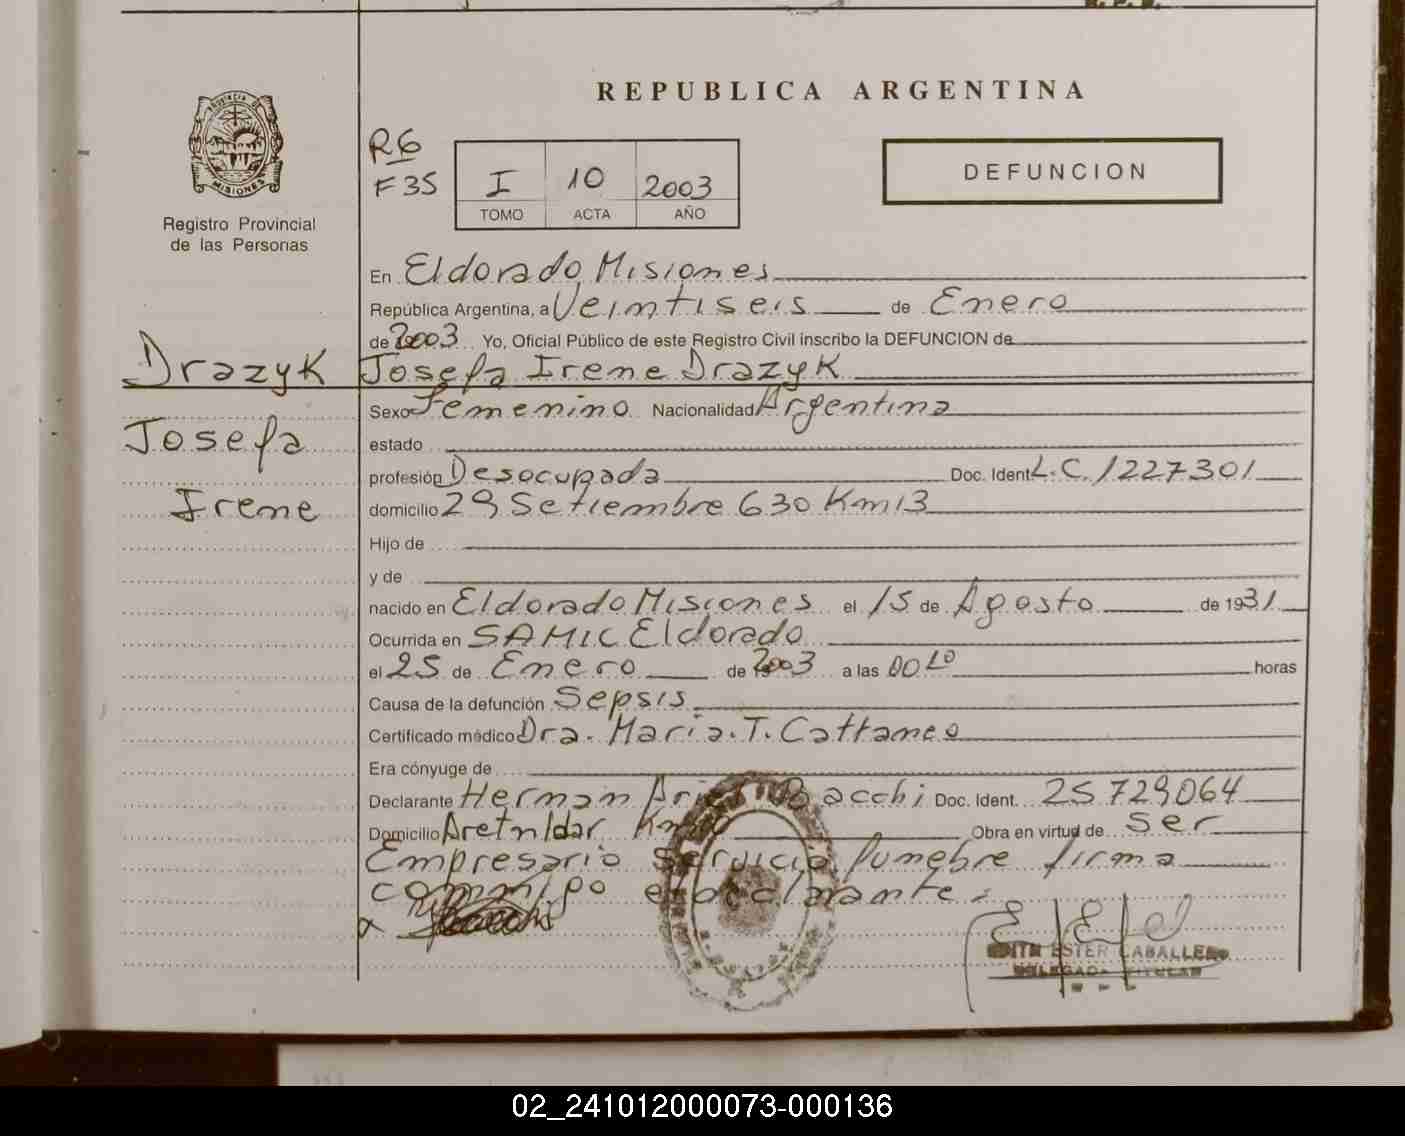 REPUBLICA ARGENTINA
PROVINCIA DE
MISIONES
Registro Provincial
de las Personas
R6
F 35
I 10 2003
TOMO ACTA AÑO
DEFUNCION
En Eldorado Misiones
República Argentina, a Veintiseis de Enero
de 2003 Yo, Oficial Público de este Registro Civil inscribo la DEFUNCION de
Drazyk
Josefa Irene Drazyk
Sexo Femenino Nacionalidad Argentina
Josefa
estado
profesión Desocupada Doc. Ident. L.C. 1227301
Irene
domicilio 29 Setiembre 630 Km 13
Hijo de
y de
nacido en Eldorado Misiones el 15 de Agosto de 1931
Ocurrida en SAMIC Eldorado
el 25 de Enero de 2003 a las 00 10 horas
Causa de la defunción Sepsis
Certificado médico Dra. Maria. T. Cattaneo
Era cónyuge de
Declarante Hernan Ariel Bacchi Doc. Ident. 25 729064
Domicilio Km Obra en virtud de Ser
Empresario Servicio funebre firma
conmigo el declarante.
EDITH ESTER CABALLERO
DELEGADA TITULAR
02_241012000073-000136